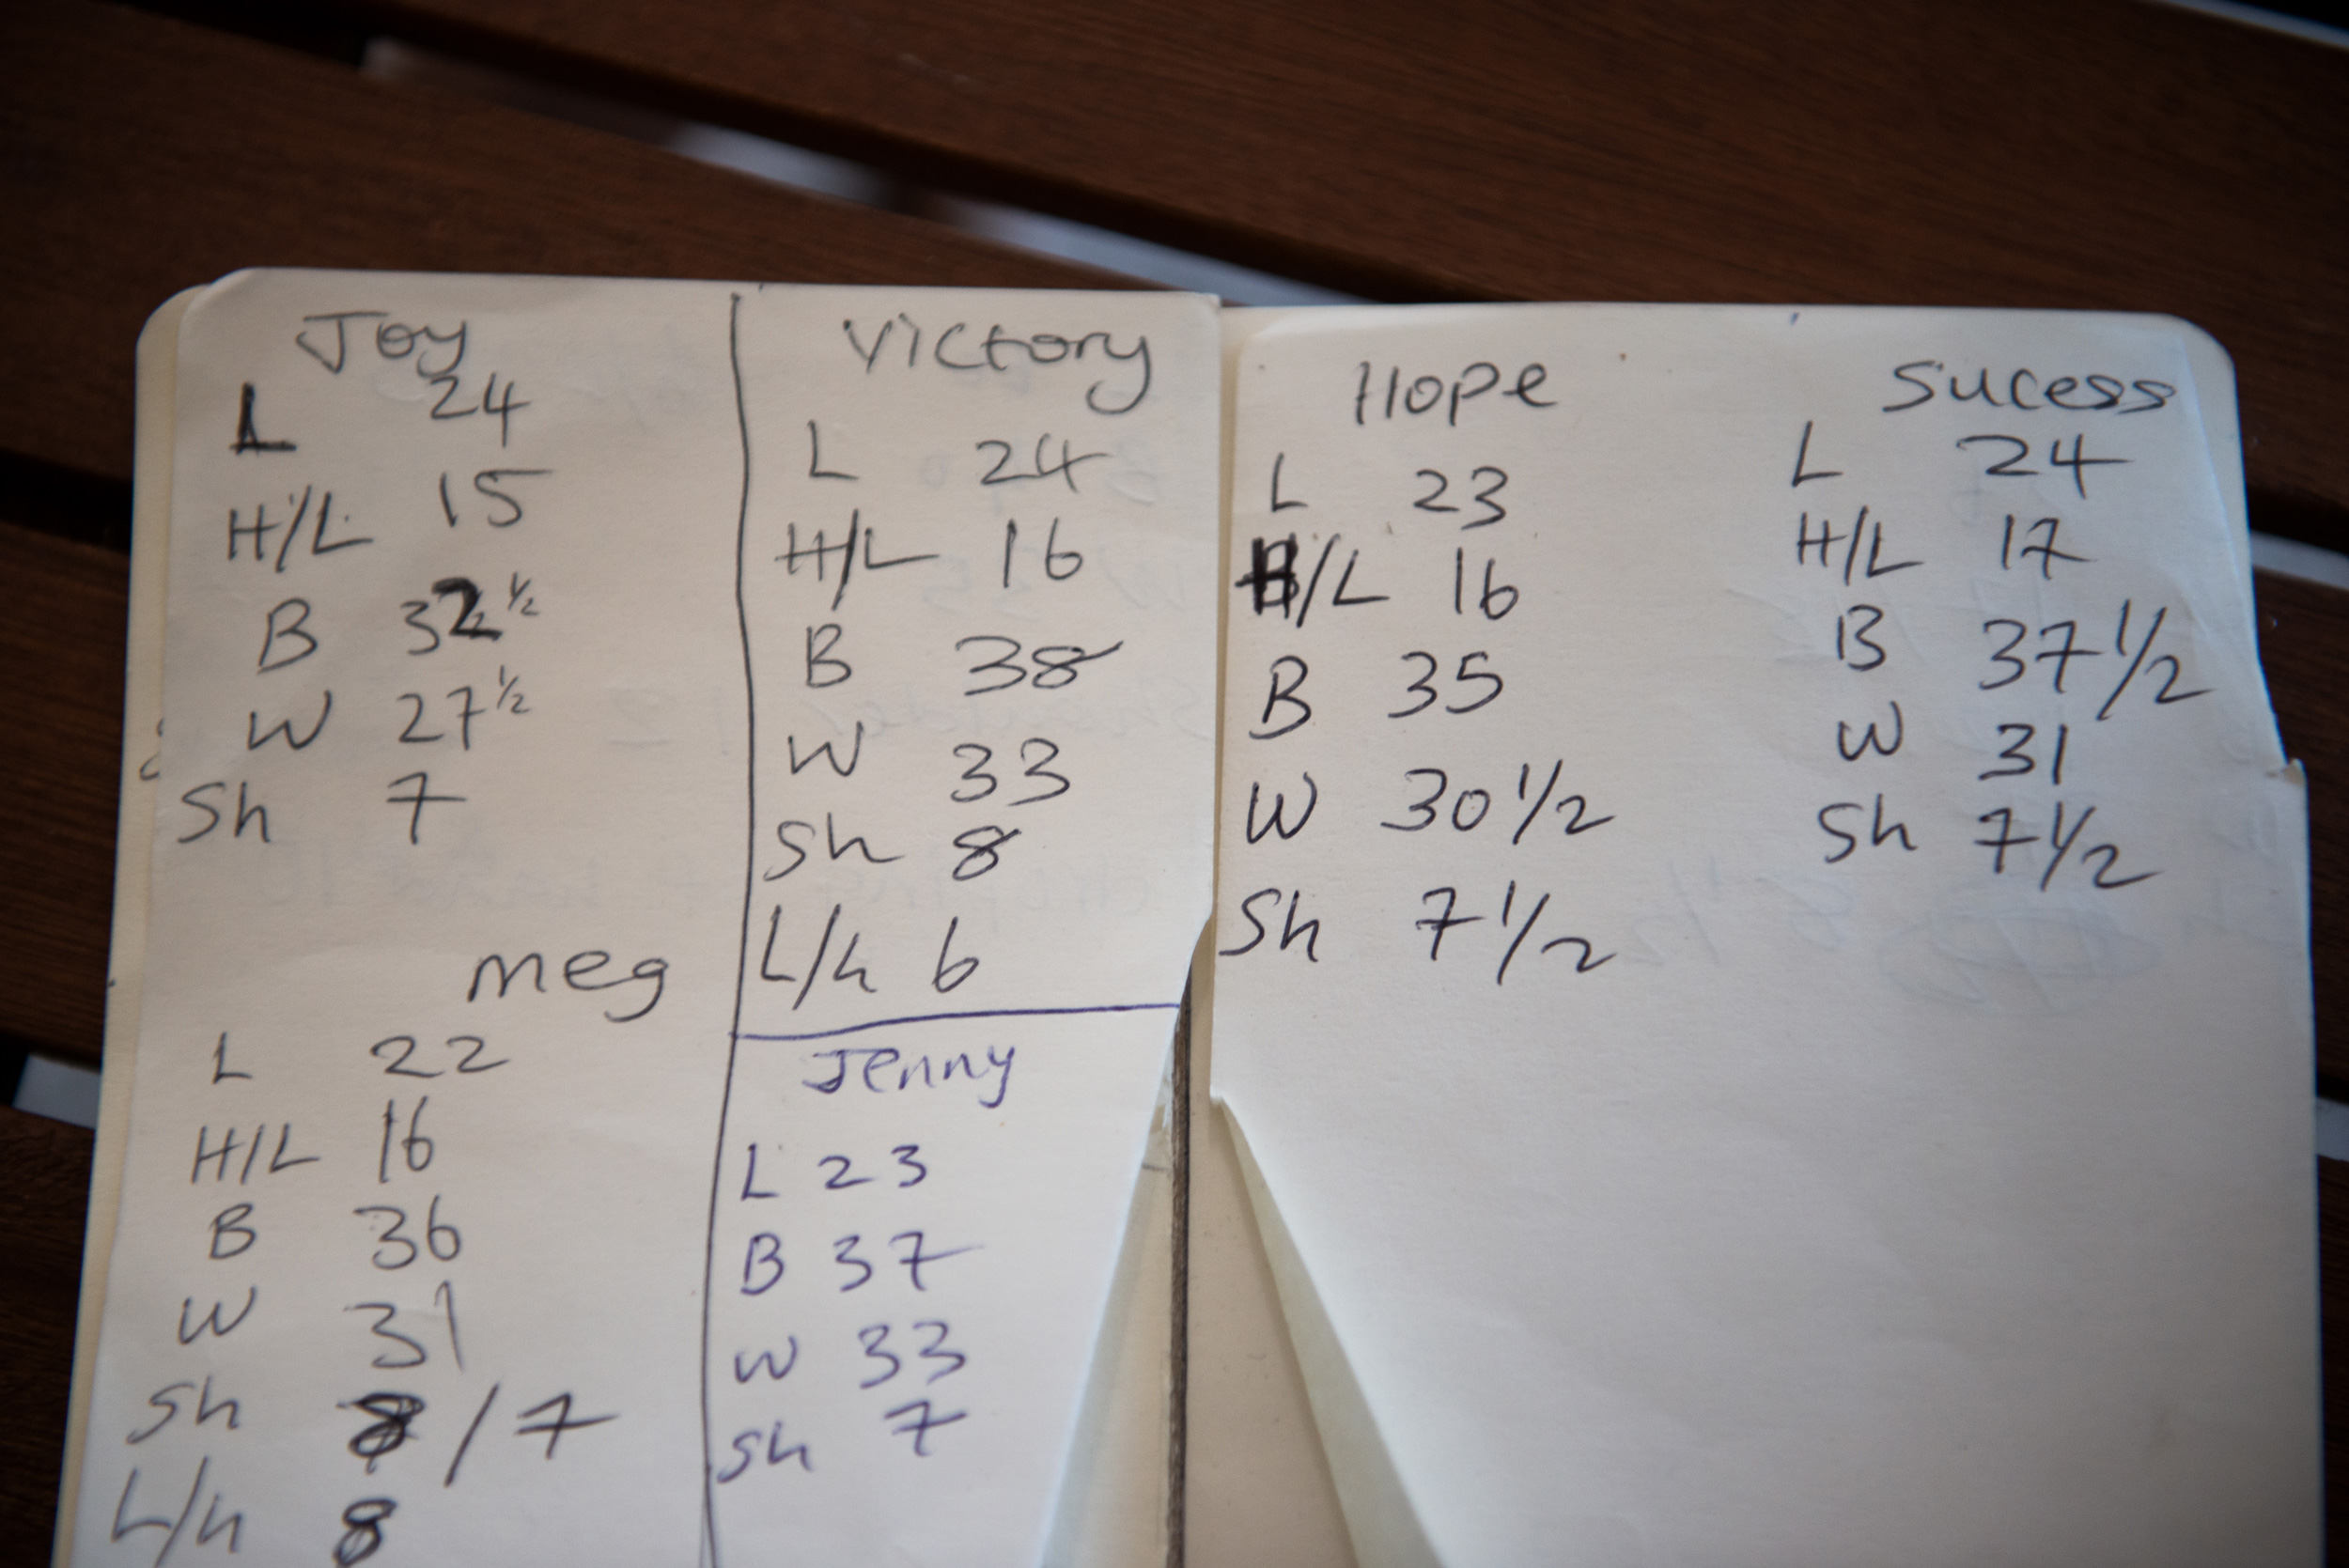 Joy
L 24
H/L 15
B 32 1/2
W 27 1/2
Sh 7
meg
L 22
H/L 16
B 36
W 31
Sh 8 / 7
L/h 8
Victory
L 24
H/L 16
B 38
W 33
Sh 8
L/h 6
Jenny
L 23
B 37
W 33
Sh 7
Hope
L 23
H/L 16
B 35
W 30 1/2
Sh 7 1/2
Sucess
L 24
H/L 17
B 37 1/2
W 31
Sh 7 1/2